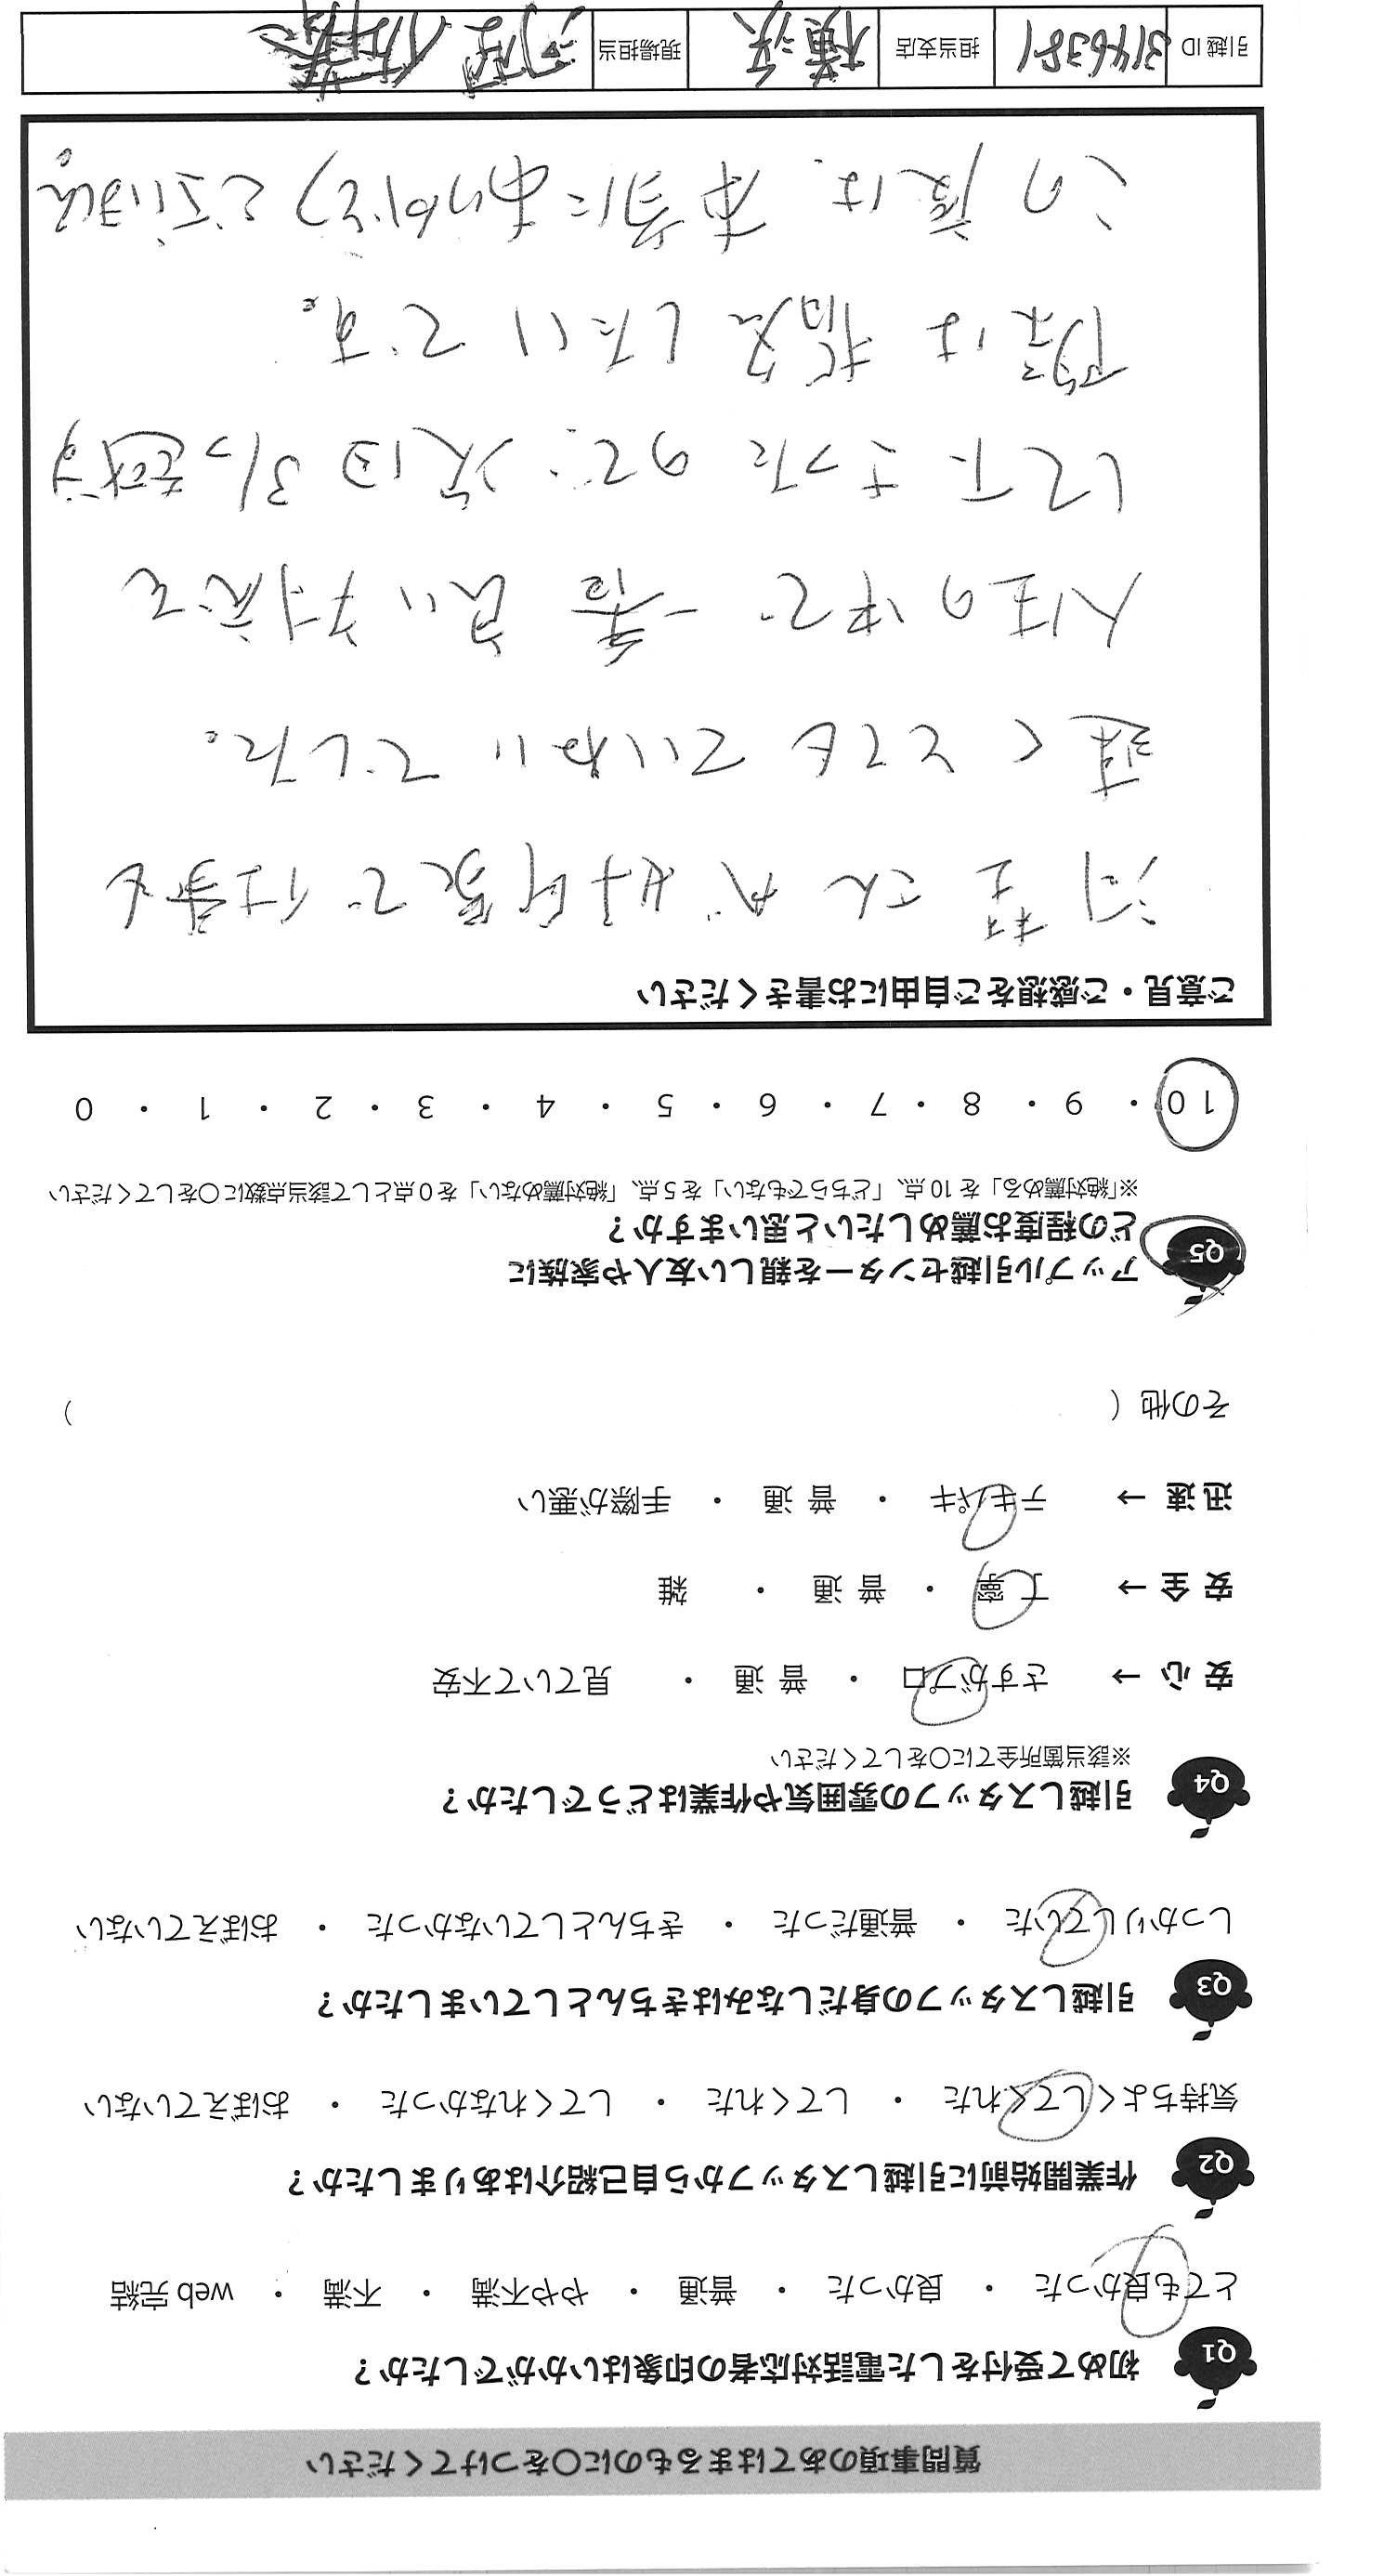 質問事項のあてはまるものに〇をつけてください
Q1 初めて受付をした電話対応者の印象はいかがでしたか？
とても良かった ・ 良かった ・ 普通 ・ やや不満 ・ 不満 ・ web 完結
Q2 作業開始前に引越しスタッフから自己紹介はありましたか？
気持ちよくしてくれた ・ してくれた ・ してくれなかった ・ おぼえていない
Q3 引越しスタッフの身だしなみはきちんとしていましたか？
しっかりしていた ・ 普通だった ・ きちんとしていなかった ・ おぼえていない
Q4 引越しスタッフの雰囲気や作業はどうでしたか？
※該当箇所全てに〇をしてください
安 心 → さすがプロ ・ 普 通 ・ 見ていて不安
安 全 → 丁 寧 ・ 普 通 ・ 雑
迅 速 → テキパキ ・ 普 通 ・ 手際が悪い
その他 (                    )
Q5 アップル引越センターを親しい友人や家族に
どの程度お薦めしたいと思いますか？
※「絶対薦める」を 10 点、「どちらでもない」を 5 点、「絶対薦めない」を 0 点として該当点数に〇をしてください
10 ・ 9 ・ 8 ・ 7 ・ 6 ・ 5 ・ 4 ・ 3 ・ 2 ・ 1 ・ 0
ご意見・ご感想をご自由にお書きください
河程さんが好印象で仕事も
速くとてもていねいでした。
人生の中で一番良い対応を
して下さったので、次回引っ越す
際は指名したいです。
この度は、本当にありがとうございました。
引越 ID 3146381 担当支店 横浜 現場担当 河程